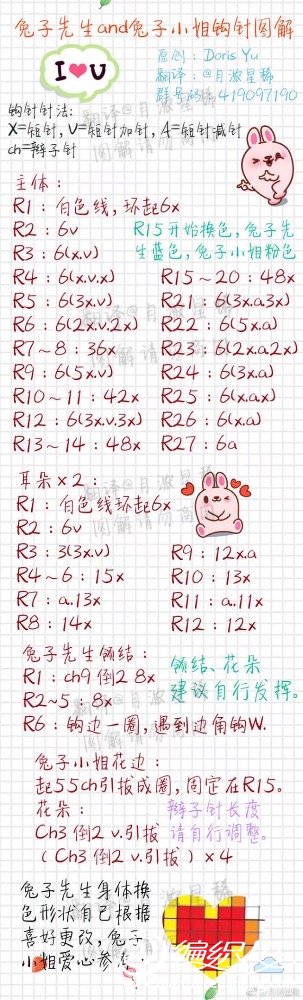 兔子先生and兔子小姐钩针图解
I ♥ U
原创：Doris Yu
翻译：@月浓星稀
群号码：419097190
钩针针法：
X=短针，V=短针加针，A=短针减针
ch=辫子针
主体：
R1：白色线，环起6x
R2：6v
R3：6(x.v)
R4：6(x.v.x)
R5：6(3x.v)
R6：6(2x.v.2x)
R7~8：36x
R9：6(5x.v)
R10~11：42x
R12：6(3x.v.3x)
R13~14：48x
R15开始换色，兔子先
生蓝色，兔子小姐粉色
R15~20：48x
R21：6(3x.a.3x)
R22：6(5x.a)
R23：6(2x.a.2x)
R24：6(3x.a)
R25：6(x.a.x)
R26：6(x.a)
R27：6a
耳朵×2：
R1：白色线环起6x
R2：6v
R3：3(3x.v)
R4~6：15x
R7：a.13x
R8：14x
R9：12x.a
R10：13x
R11：a.11x
R12：12x
兔子先生领结：
R1：ch9 倒2 8x
R2~5：8x
R6：钩边一圈，遇到边角钩W.
领结、花朵
建议自行发挥。
兔子小姐花边：
起55ch引拔成圈，固定在R15。
花朵：
Ch3 倒2 v.引拔
（Ch3 倒2 v.引拔）×4
辫子针长度
请自行调整。
兔子先生身体换
色形状自己根据
喜好更改，兔子
小姐爱心参
编织